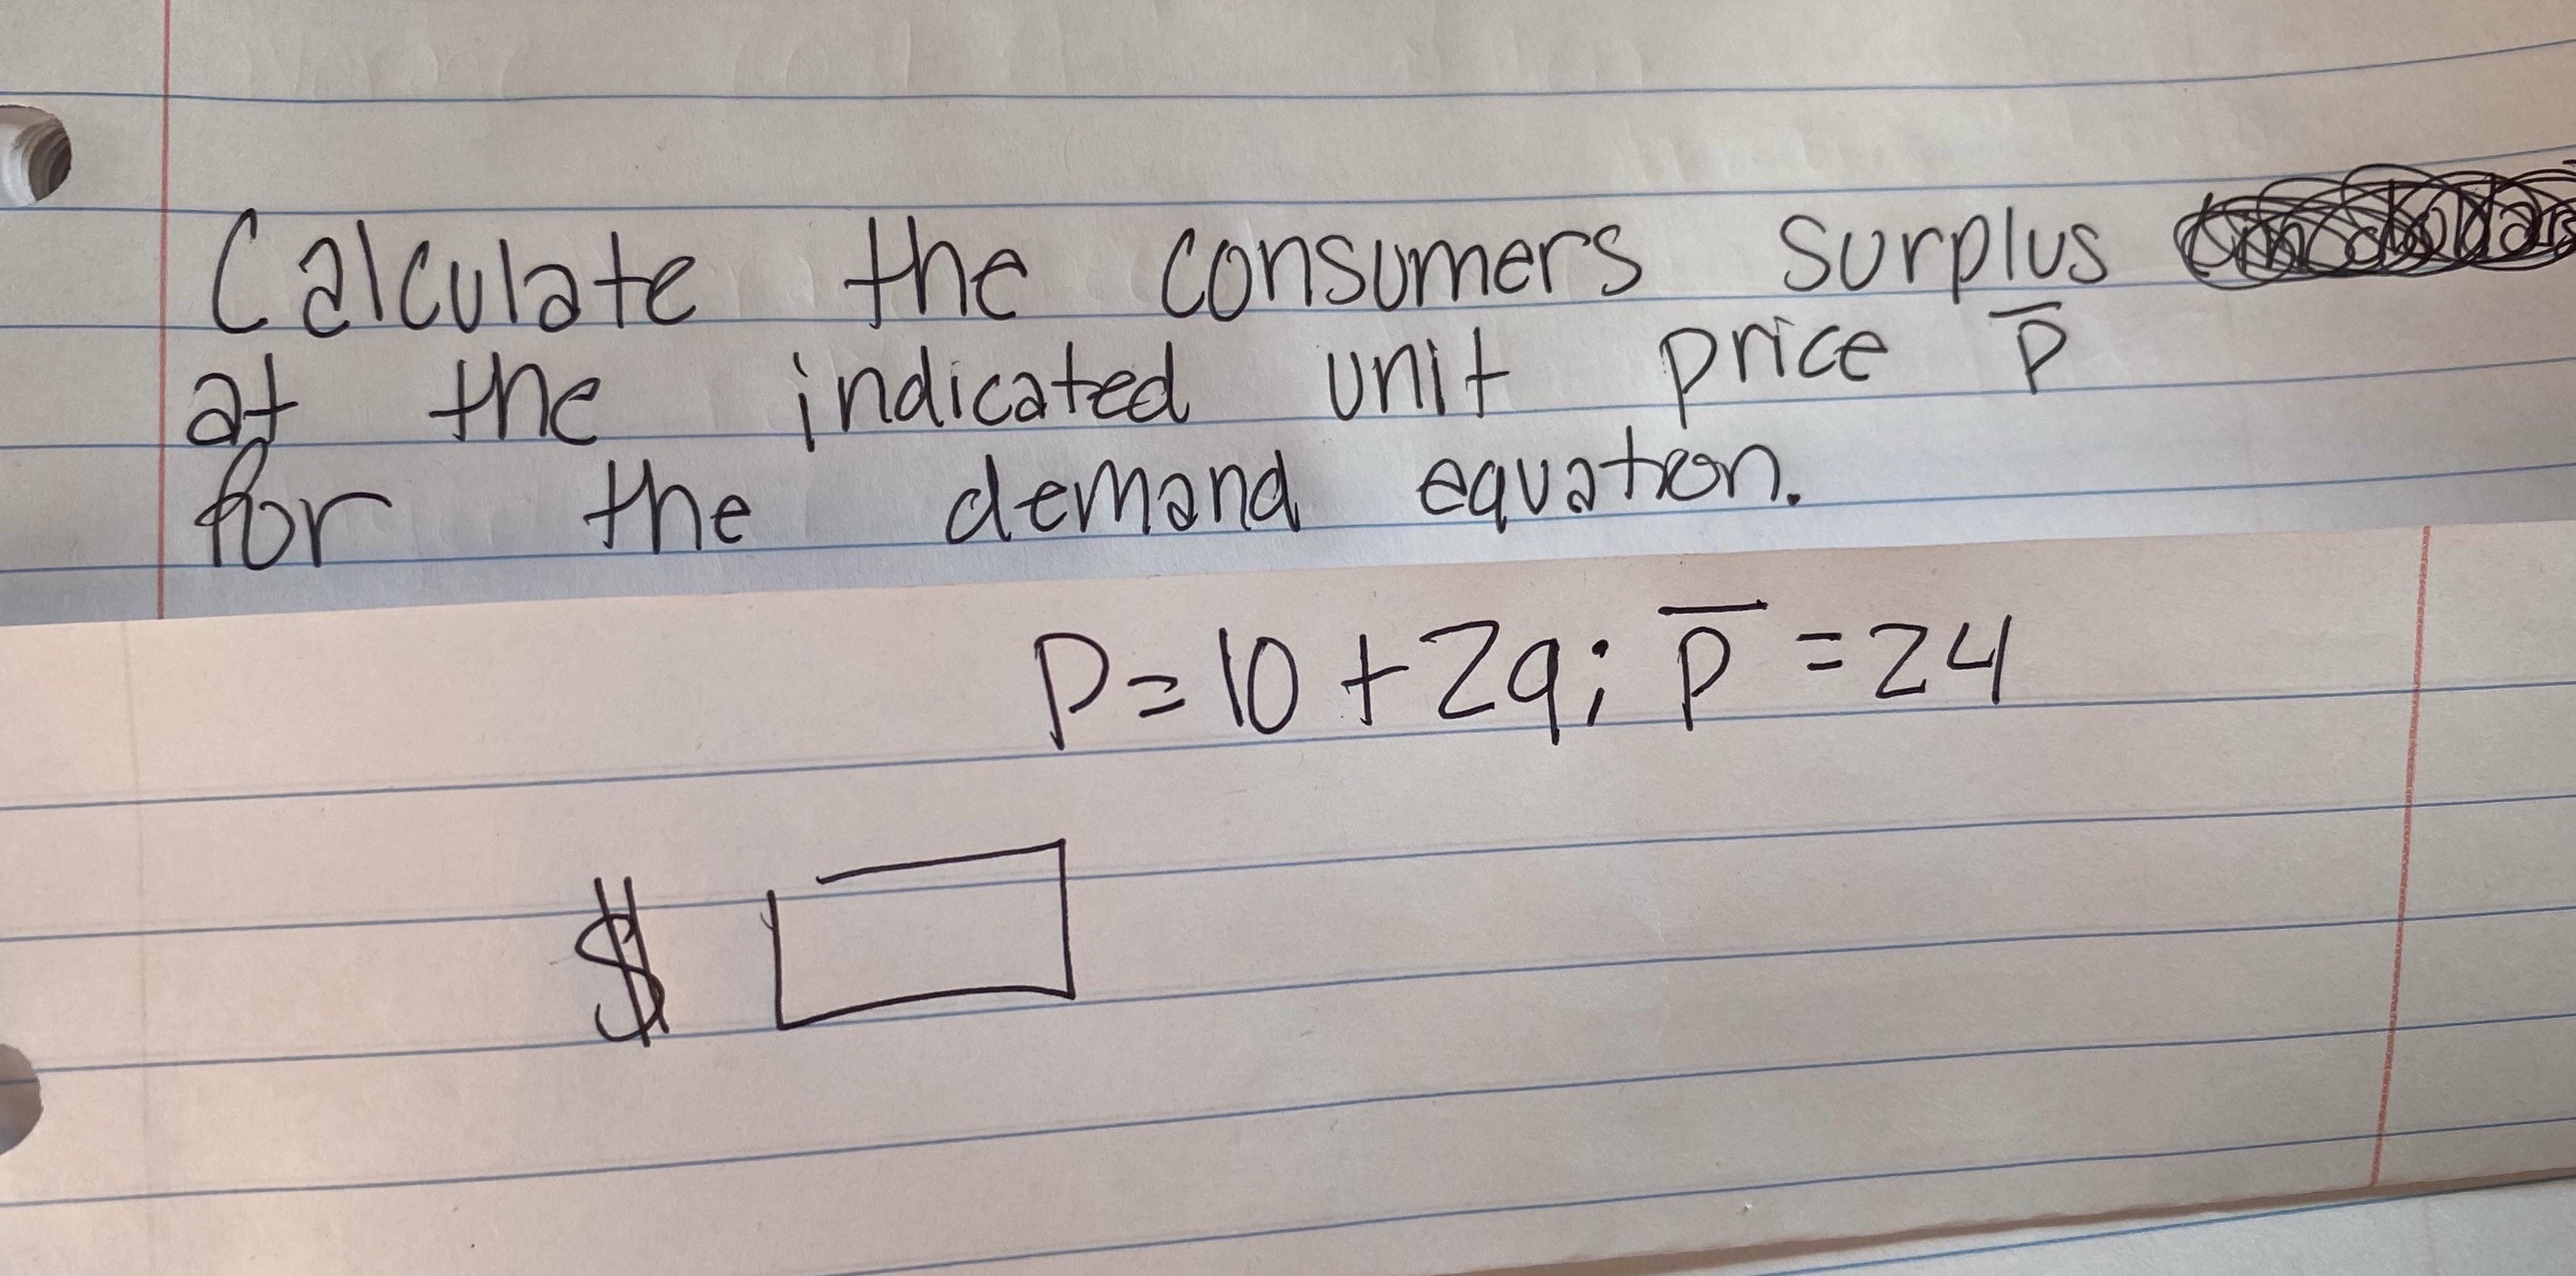 Calculate the consumers surplus
at the indicated unit price p̅
for the demand equation.
P = 10 + 2q; p̅ = 24
$